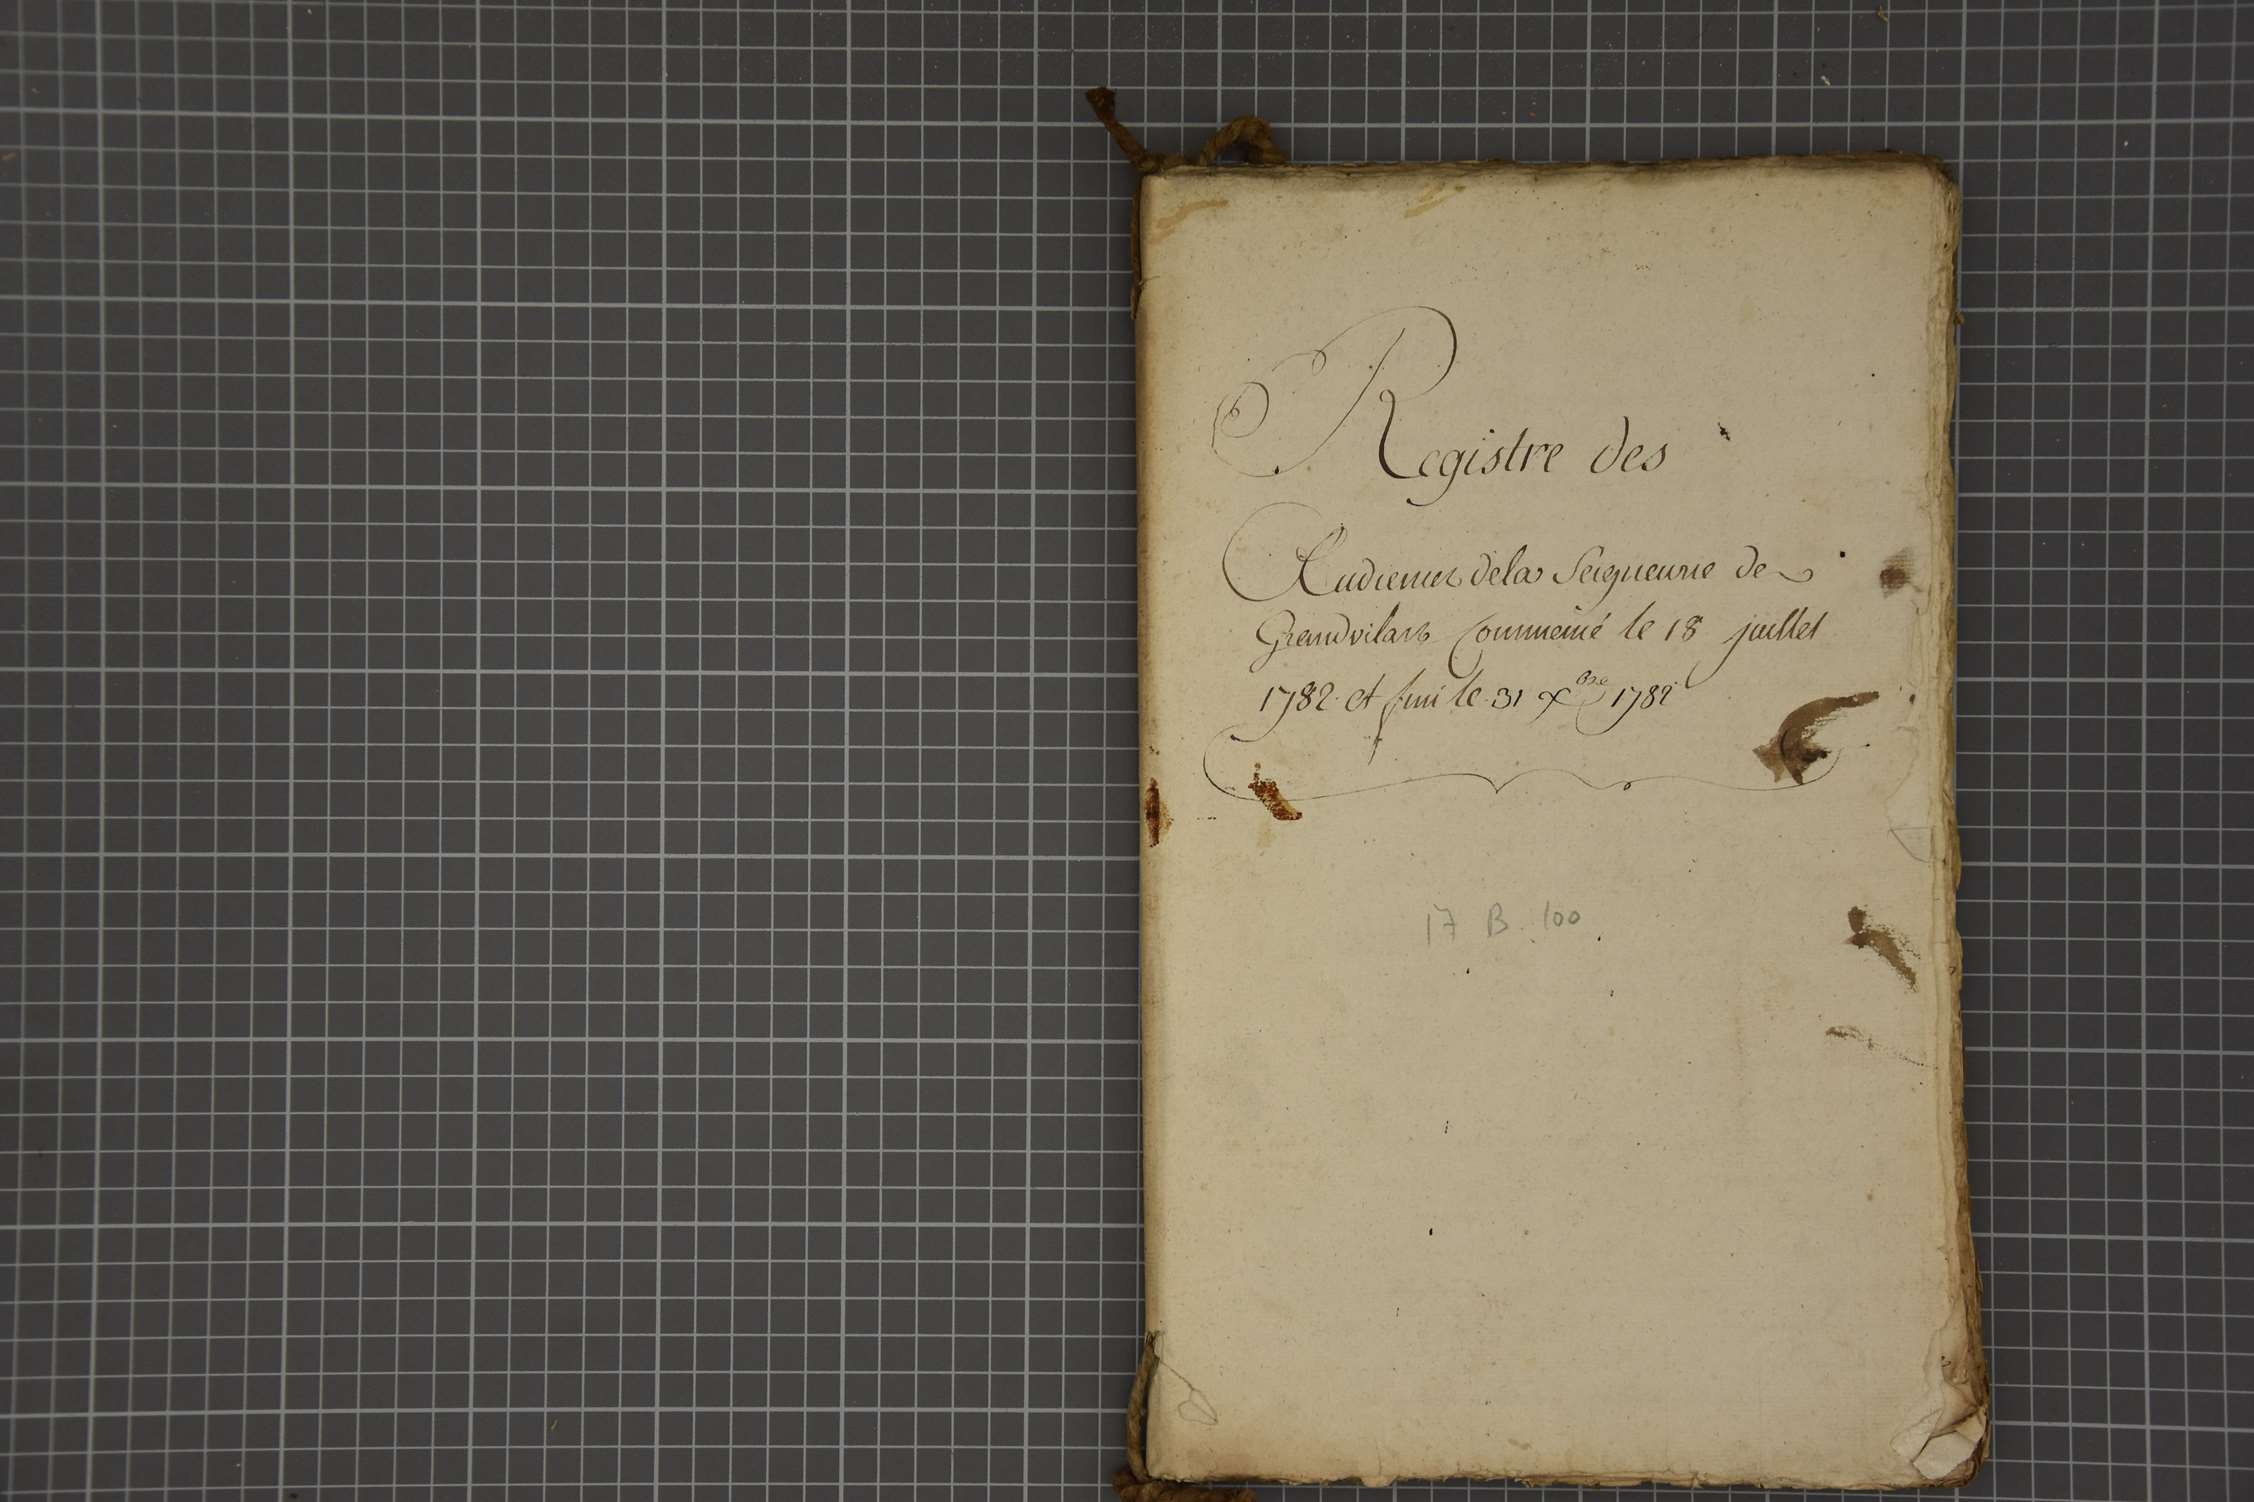 Registre des
Audiences dela Seigneurie de
Grandvilars Commencé le 18 juillet
1782. et fini le. 31 Xbre 1782
17 B. 100